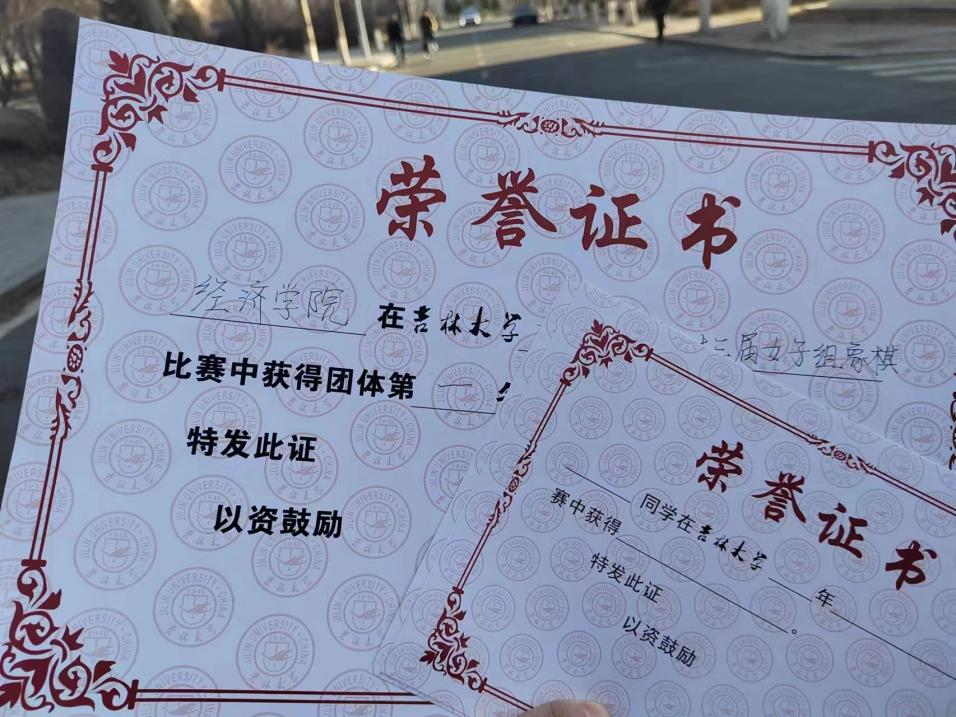 荣誉证书
经济学院 在吉林大学
十三届女子组象棋
比赛中获得团体第一
特发此证
以资鼓励
荣誉证书
同学在吉林大学 年
赛中获得 。
特发此证
以资鼓励
JILIN UNIVERSITY · CHINA
吉林大学
1946